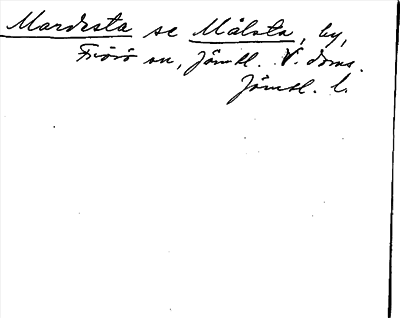 Mardesta se Målsta, by,
Frösö sn, Jämtl. V. doms.
Jämtl. l.